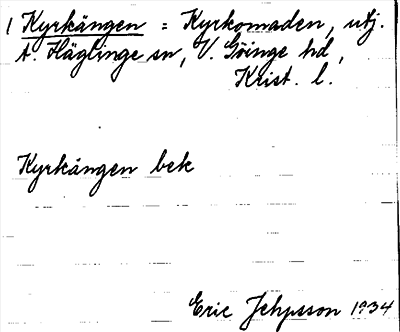 1 Kyrkängen = Kyrkomaden, utj.
t. Häglinge sn, V. Göinge hd,
Krist. l.
Kyrkängen bek
Eric Jehpsson 1934